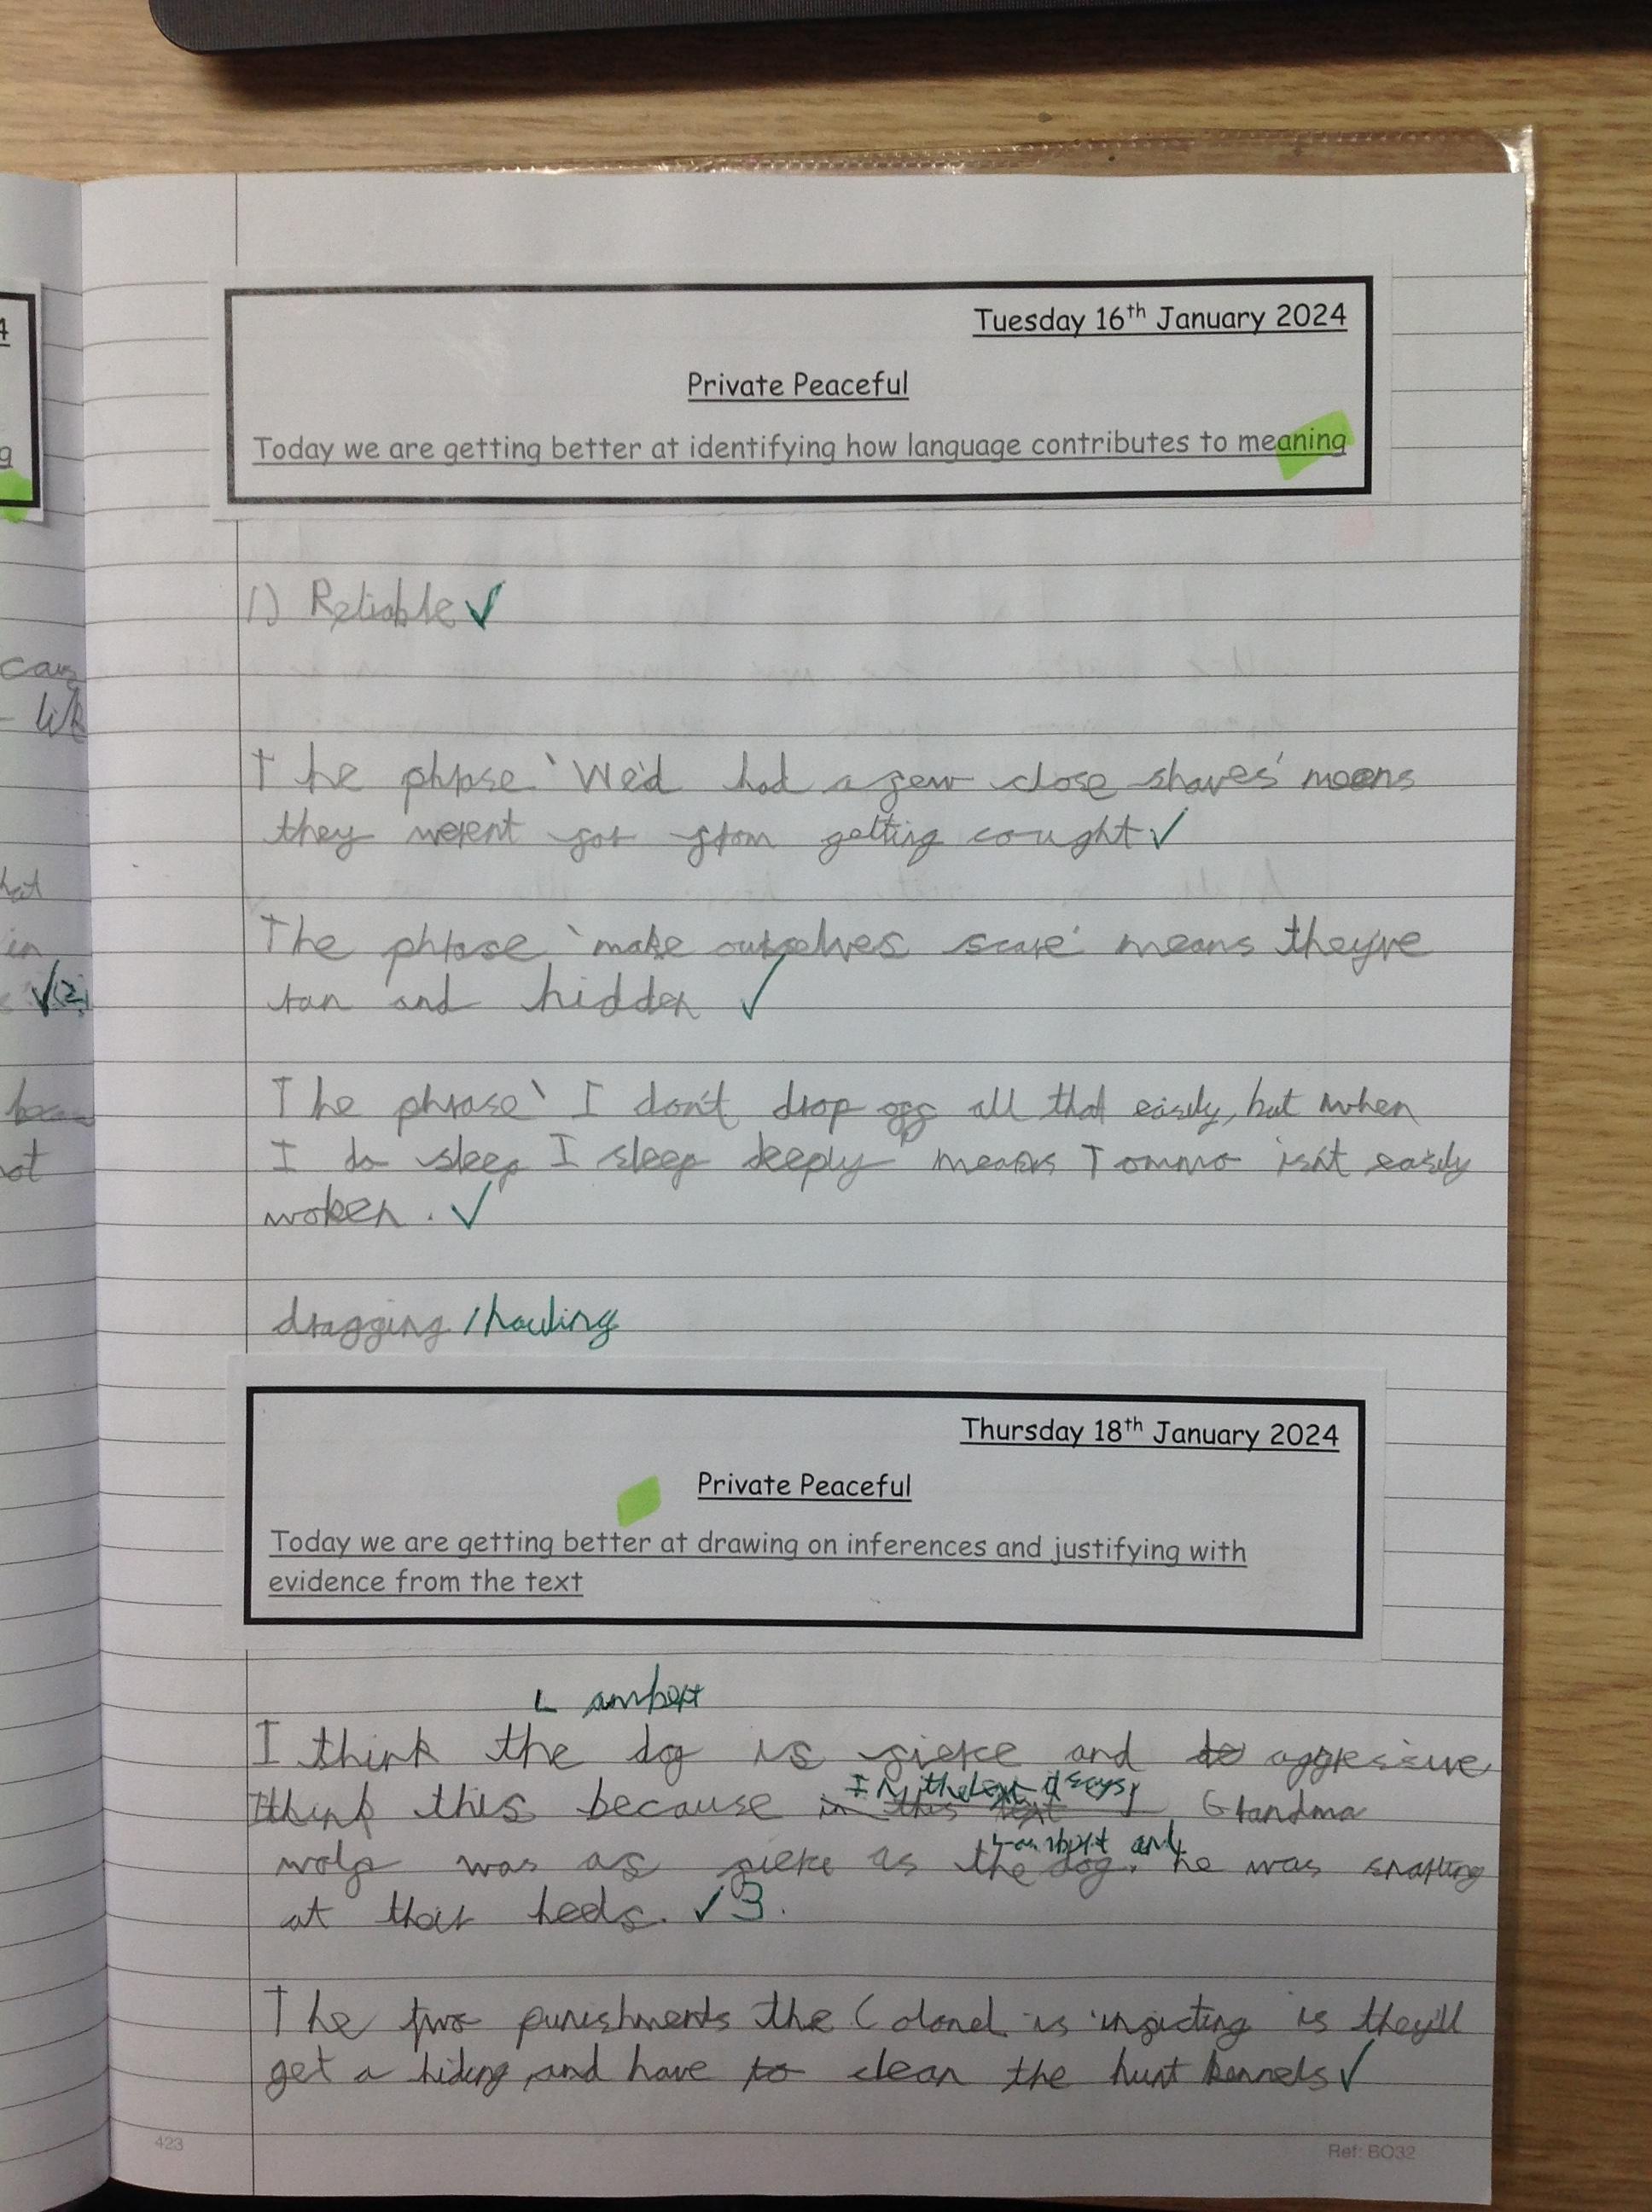 4
g
caus
- lik
hat
in
✓(2)
not
Tuesday 16th January 2024
Private Peaceful
Today we are getting better at identifying how language contributes to meaning
1) Reliable ✓
The phrase 'We'd had a few close shaves' means
they werent far from getting caught ✓
The phrase 'make ourselves scare' means they're
ran and hidden ✓
The phrase 'I don't drop off all that easily, but when
I do sleep I sleep deeply' means Tommo isn't easily
woken. ✓
dragging / hauling
Thursday 18th January 2024
Private Peaceful
Today we are getting better at drawing on inferences and justifying with
evidence from the text
Lambert
I think the dog is fierce and aggressive
I think this because in this text Grandma
In the text it says,
Lambert and
wolf was as fierce as the dog. he was snapping
at their heels. ✓ 3.
The two punishments the Colonel is inflicting is they'll
get a hiding, and have to clean the hunt kennels ✓
423
Ref: BO32